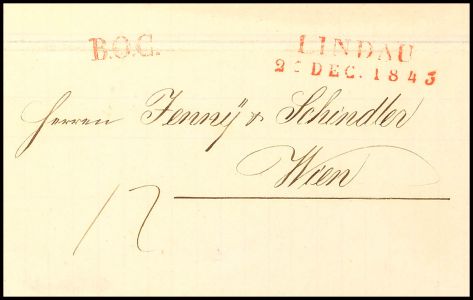 B.O.C.
LINDAU
DEC. 1843
Herren Jenny & Schindler
Wien
12